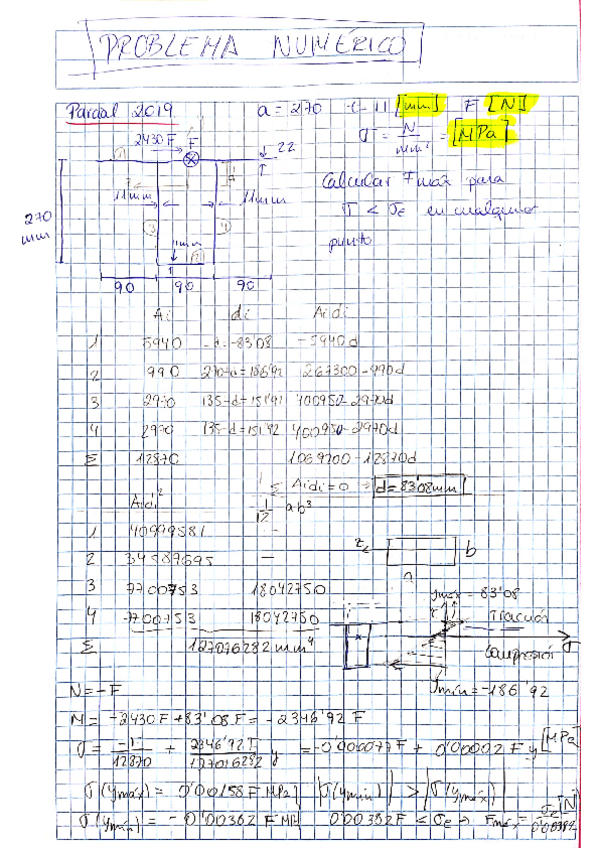 PROBLEMA NUMÉRICO
Parcial 2019
a = 270 t = 11 [mm] F [N]
σ = N/mm² = [MPa]
2430 F
F
22
Calcular Fmáx para
σ < σe en cualquier
punto
11mm
11mm
270
mm
11mm
1
2
3
4
90 90 90
Ai di Aidi
1 5940 -d = -83'08 -5940d
2 990 270-d = 186'92 267300-990d
3 2970 135-d = 151'91 400950-2970d
4 2970 135-d = 151'92 400950-2970d
Σ 12870 1069200-12870d
Σ Aidi = 0 → d = 83'08mm
Aidi² 1/12 ab³
1 40999581 -
2 34589695 -
3 7700753 18042750
4 7700753 18042750
Σ 127076282 mm⁴
z
b
a
ymáx = 83'08
Tracción
σ
Compresión
ymín = -186'92
N = -F
M = -2430F + 83'08F = -2346'92 F
σ = -F/12870 + 2346'92F/127076282 y = -0'000077F + 0'00002 F y [MPa]
σ(ymáx) = 0'00158 F MPa |σ(ymín)| > |σ(ymáx)|
σ(ymín) = -0'00382 F MPa 0'00382F < σe → Fmáx = σe/0'00382 [N]